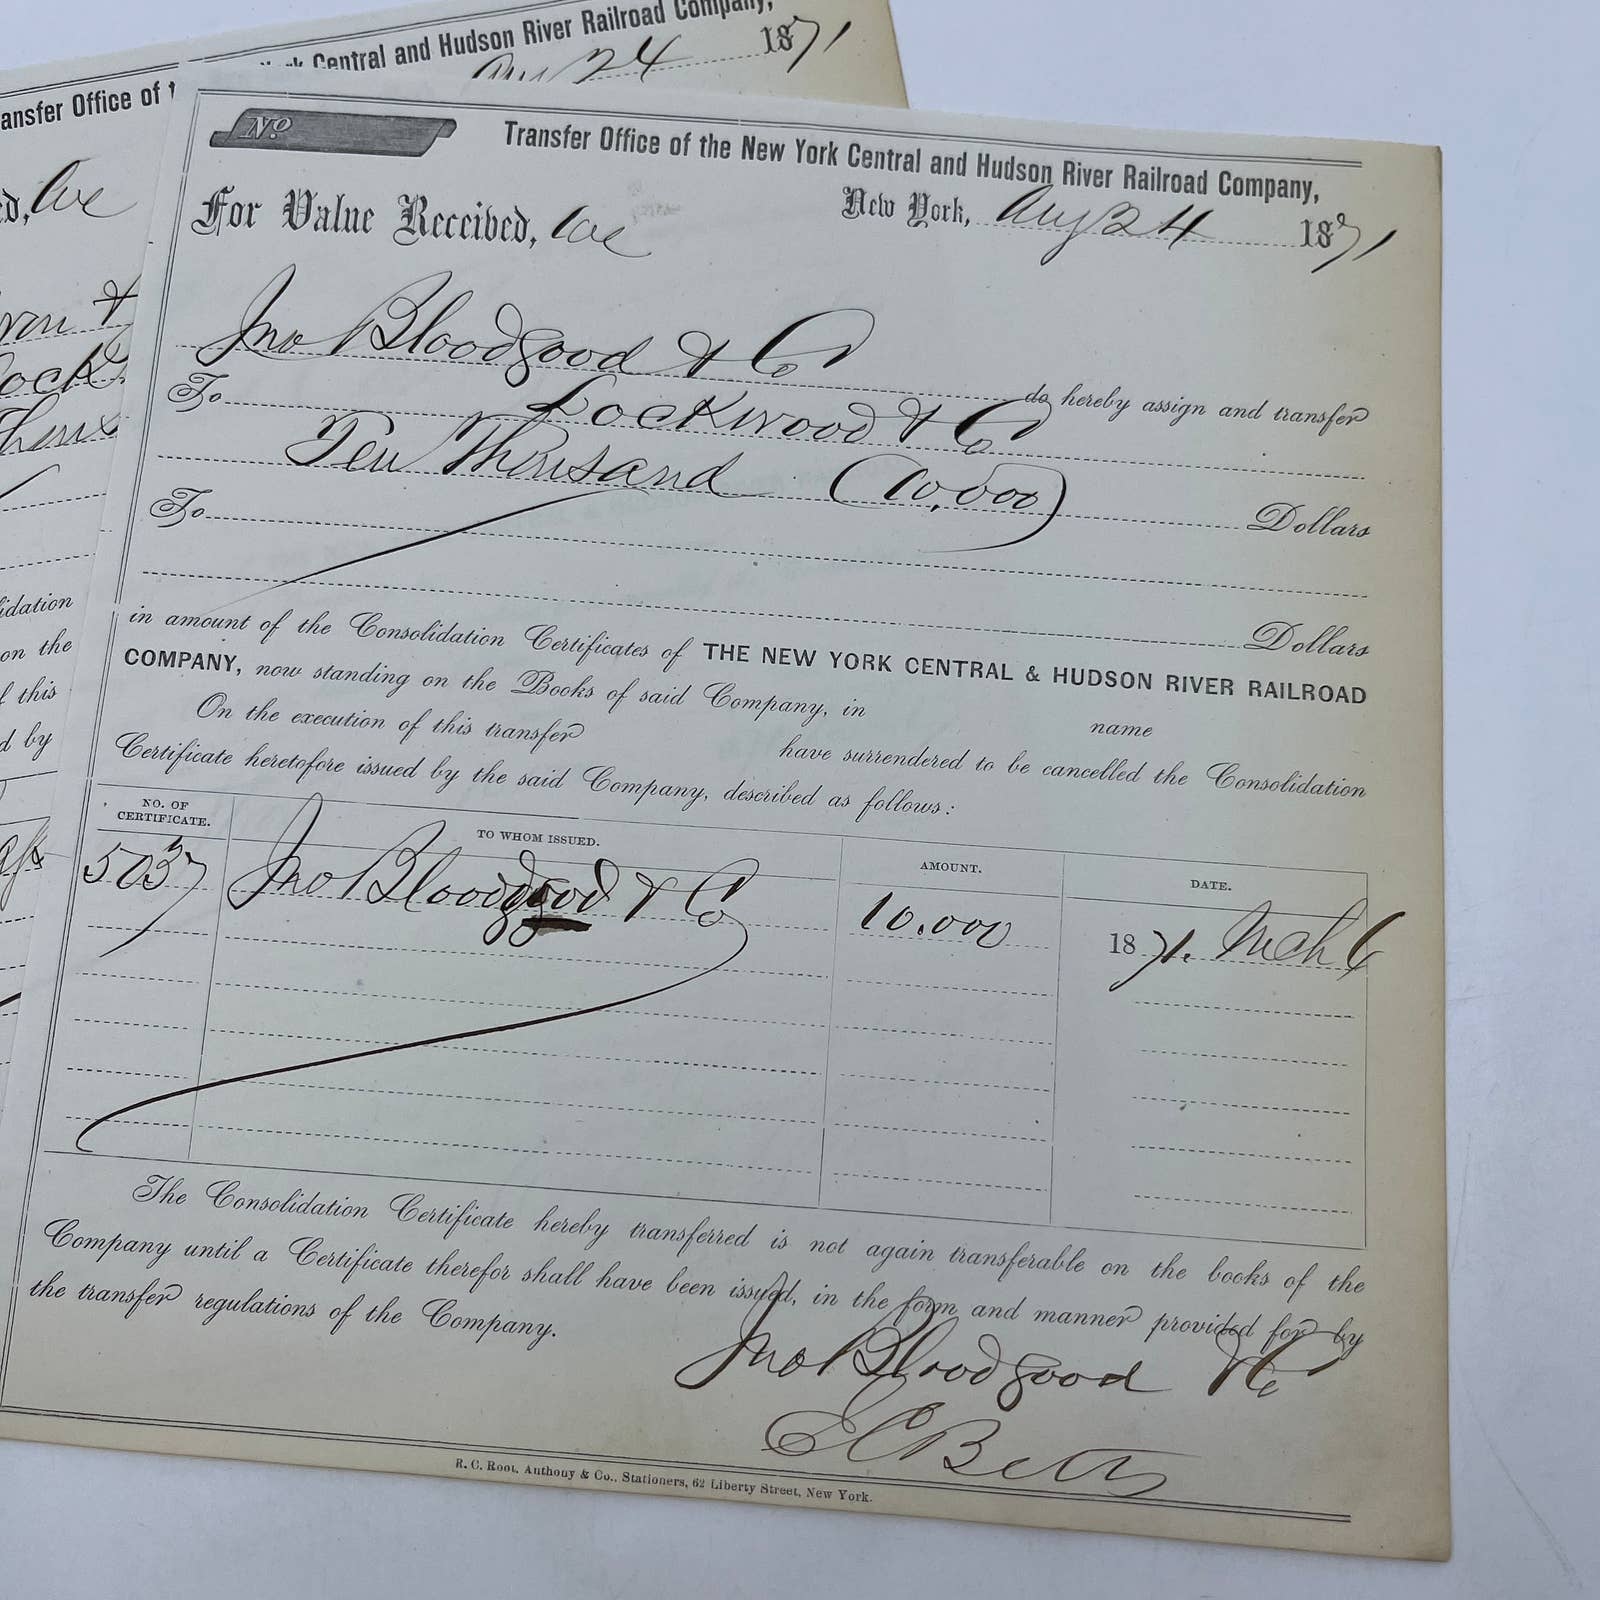 Central and Hudson River Railroad Company,
24 1871
ansfer Office of
ed, We
Nº
Transfer Office of the New York Central and Hudson River Railroad Company,
For Value Received, We
New York, Aug 24 1871
Jno Bloodgood & Co
do hereby assign and transfer
To Lockwood & Co
Ten Thousand (10,000) Dollars
To
Dollars
in amount of the Consolidation Certificates of THE NEW YORK CENTRAL & HUDSON RIVER RAILROAD
COMPANY, now standing on the Books of said Company, in name
On the execution of this transfer have surrendered to be cancelled the Consolidation
Certificate heretofore issued by the said Company, described as follows:
NO. OF CERTIFICATE. TO WHOM ISSUED. AMOUNT. DATE.
5037 Jno Bloodgood & Co 10.000 1871. Mch 6
The Consolidation Certificate hereby transferred is not again transferable on the books of the
Company until a Certificate therefor shall have been issued, in the form and manner provided for by
the transfer regulations of the Company.
Jno Bloodgood & Co
E C Betts
R. C. Root, Anthony & Co., Stationers, 62 Liberty Street, New York.
idation
on the
f this
d by